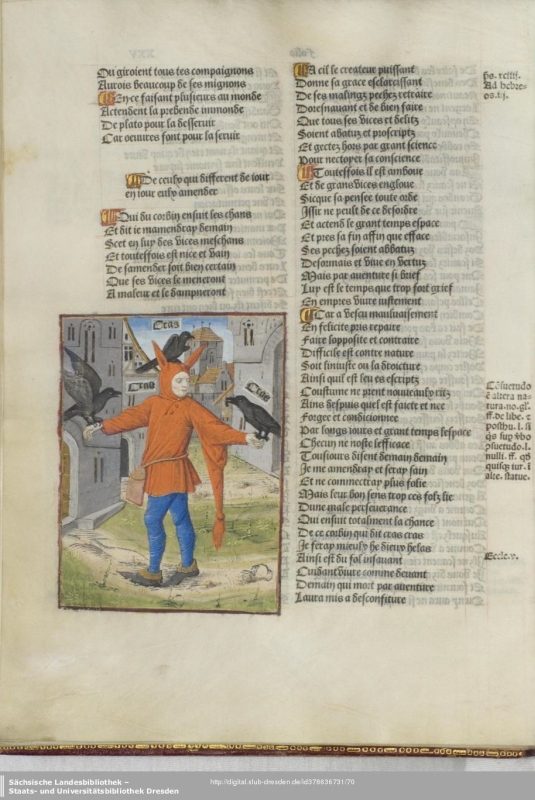 Ou giroient tous tes compaignons
Aurois beaucoup de ses mignons
En ce faisant plusieurs au monde
Actendent la prebende immonde
De plato pour la desseruir
Car oeuures font pour la seruir
De ceulx qui different de iour
en iour eulx amender
Qui du corbin ensuit les chans
Et dit ie mamendray demain
Scet en luy des vices meschans
Et toutesfois est nice et vain
De samender soit bien certain
Que ses vices le meneront
A maleur et le dampneront
Cras
Cras
Cras
La cil le createur puissant
Donne sa grace esclarcissant
De ses malingz pechez retraire
Doresnauant et de bien faire
Que tous ses vices et delitz
Soient abatuz et proscriptz
Et gectez hors par grant science
Pour nectoyer sa conscience
Toutesfois il est
Et de grans vices engloue
Sicque sa pensee toute orde
Issir ne peult de ce desordre
Et actend le grant temps espace
Et pres sa fin affin que efface
Ses pechez soient abbatuz
Desormais et viue en vertuz
Mais par auenture si brief
Luy est le temps que trop fort grief
En empres viure iustement
Car a vescu mauluaisement
En felicite pris repaire
Faire lopposite et contraire
Difficile est contre nature
Soit liniuste ou la droicture
Ainsi quil est leu es escriptz
Coustume ne prent nouueaulx ritz
Ains despuis quel est faicte et nee
Forgee et condicionnee
Par longs iours et grant temps lespace
Chacun ne noste lefficace
Tousiours disent demain demain
Je me amendray et seray sain
Et ne commectray plus folie
Mais leur bon sens trop ces folz lie
Dune male perseuerance
Qui ensuit totalment la chance
De ce corbin qui dit cras cras
Je seray mieulx he dieux helas
Ainsi est du fol insauant
Cuidant viure comme deuant
Demain qui mort par auenture
Laura mis a desconfiture
ps. xciiij.
Ad hebre-
os. iij.
Cõsuetudo
ē altera na-
tura. no. gl.
ff. de libe. e
posthu. l. si
qs sup vbo
ꝑsuetudo. l.
nulli. ff. qd
quisqz iur. i
alte. statue.
Eccle. v.
Sächsische Landesbibliothek –
Staats- und Universitätsbibliothek Dresden
http://digital.slub-dresden.de/id378636731/70